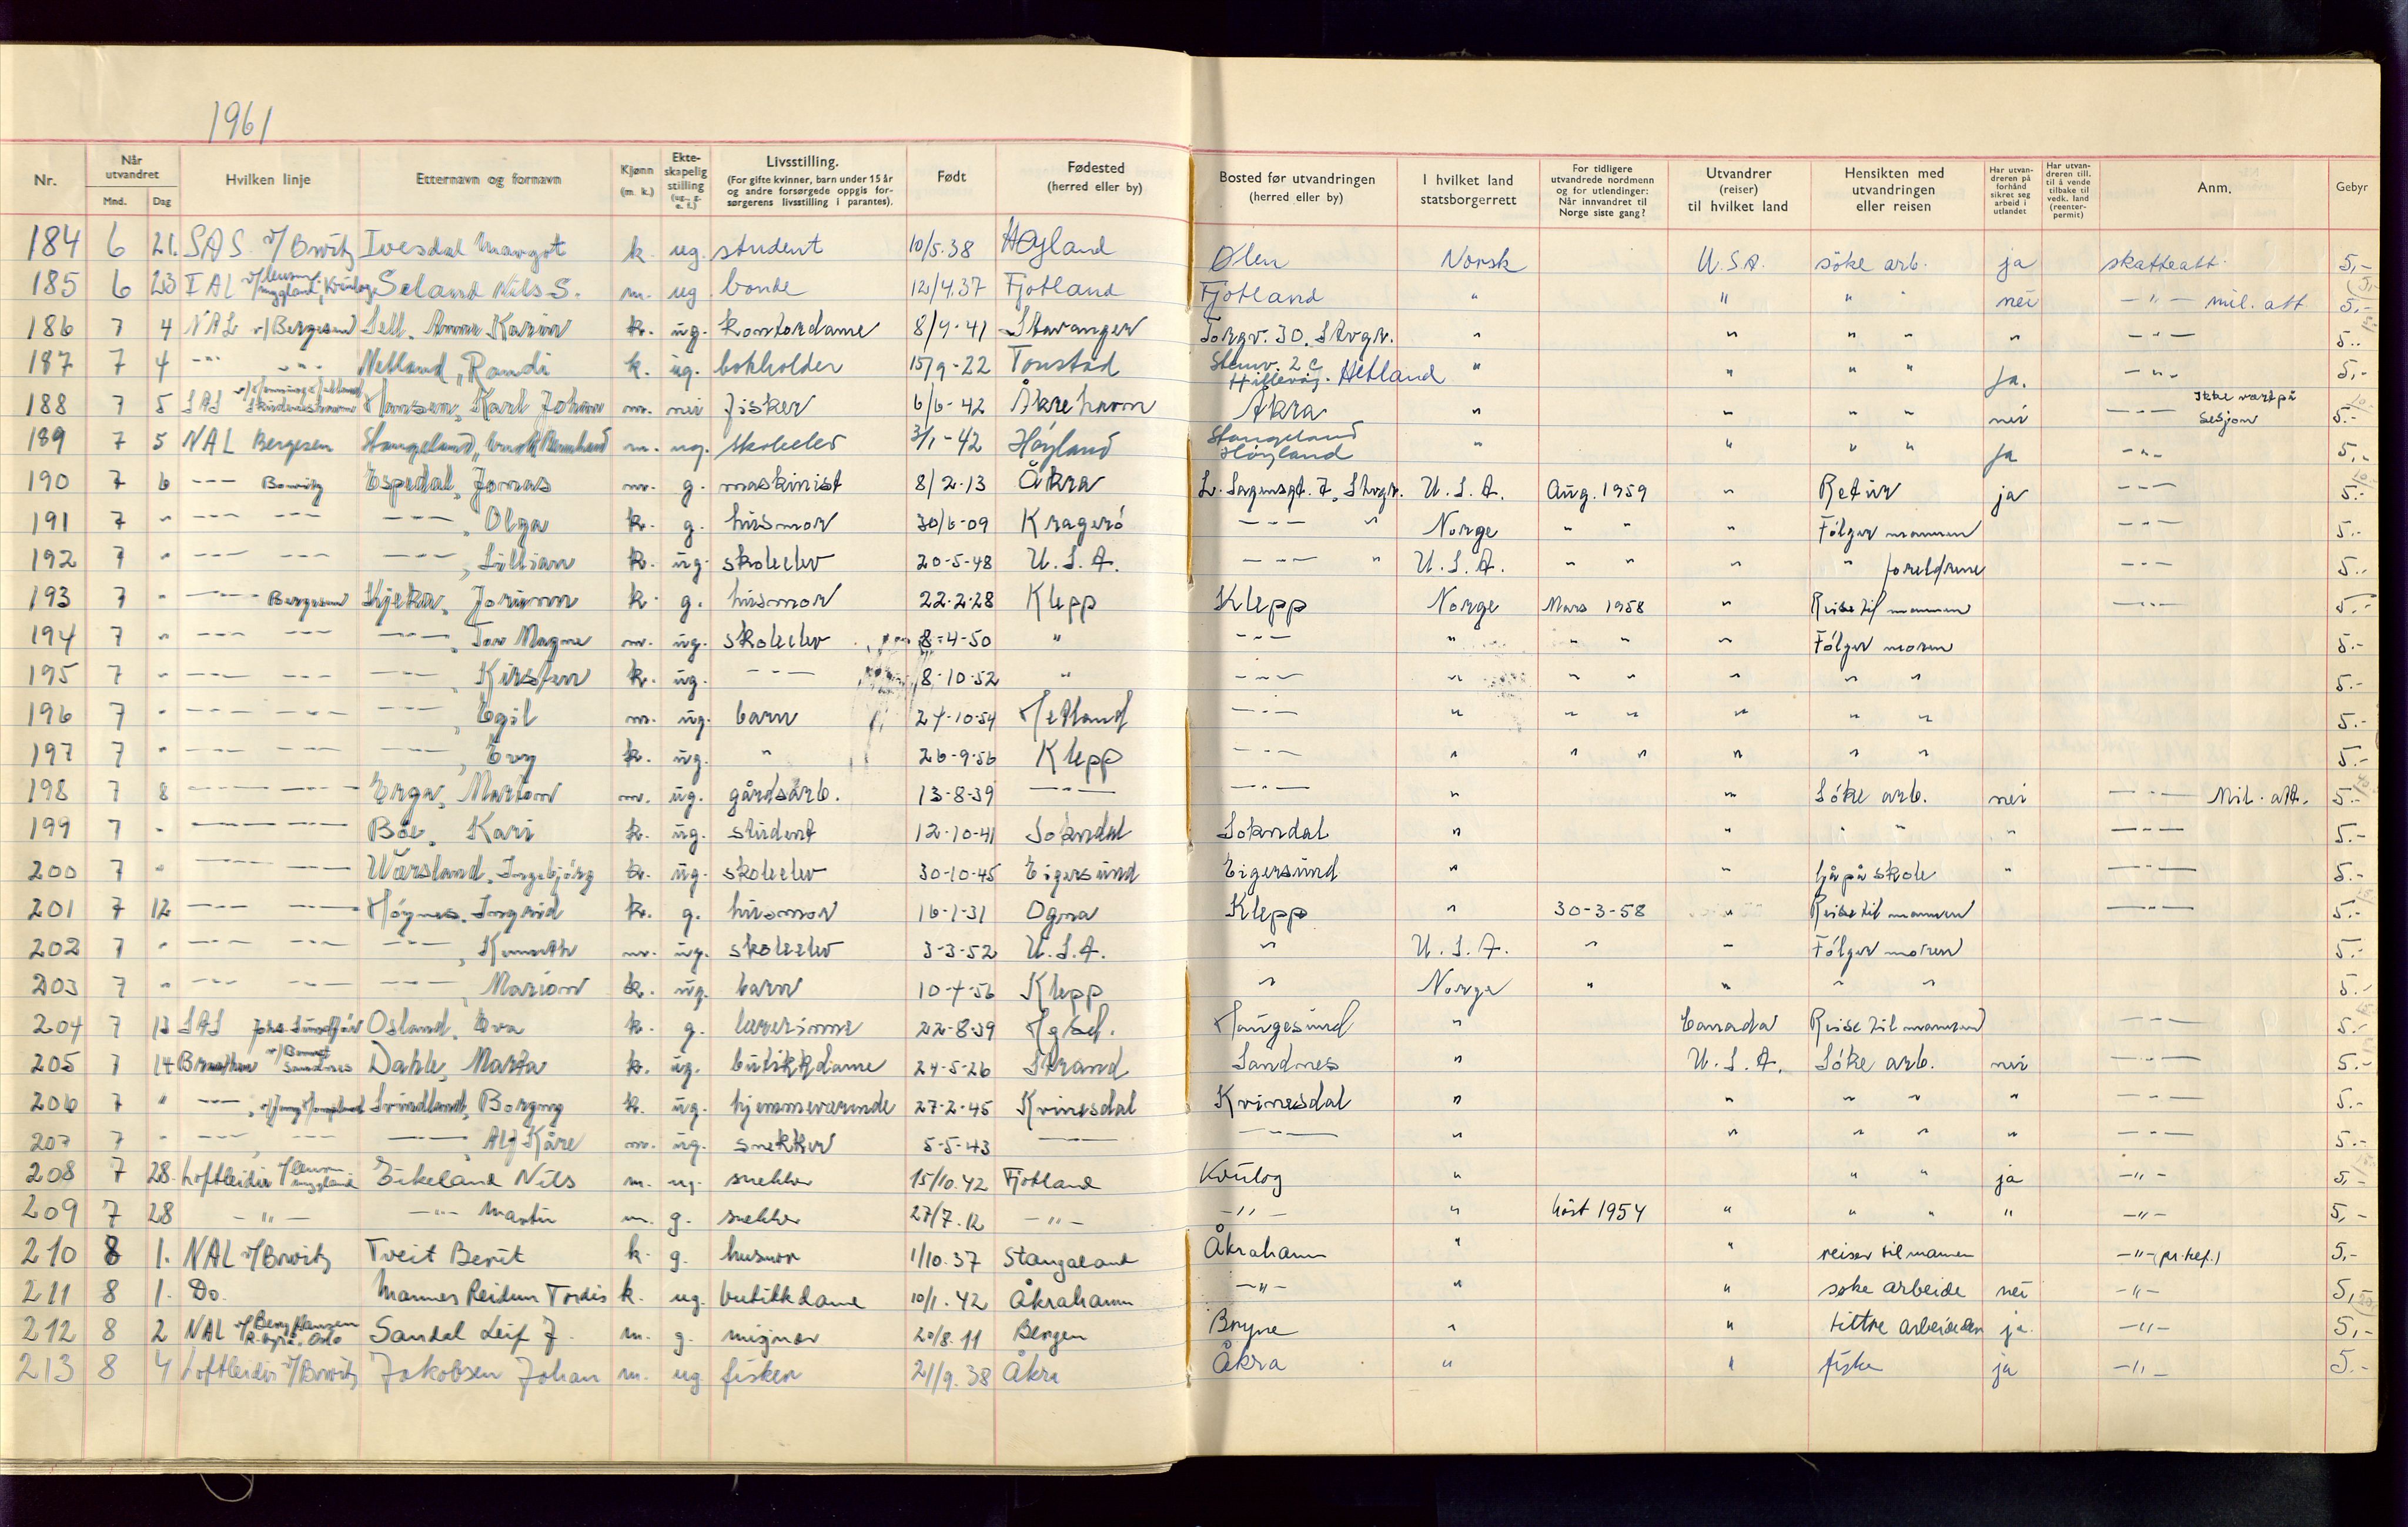 1961
Nr. Når utvandret Mnd. Dag Hvilken linje Etternavn og fornavn Kjønn (m. k.) Ekteskapelig stilling (ug., g. e. f.) Livsstilling. (For gifte kvinner, barn under 15 år og andre forsørgede oppgis forsørgerens livsstilling i parantes). Født Fødested (herred eller by) Bosted før utvandringen (herred eller by) I hvilket land statsborgerrett For tidligere utvandrede nordmenn og for utlendinger: Når innvandret til Norge siste gang? Utvandrer (reiser) til hvilket land Hensikten med utvandringen eller reisen Har utvandreren på forhånd sikret seg arbeid i utlandet Har utvandreren till. til å vende tilbake til vedk. land (reenterpermit) Anm. Gebyr
184 6 21. SAS. v/Browitz Ivesdal Margot k. ug. student 10/5.38 Høyland Ølen Norsk U.S.A. søke arb. ja skatteatt. 5,-
185 6 23 IAL Seland Nils S. m. ug. bonde 12/4.37 Fjotland Fjotland " " " " nei -"- mil. att 5,-
186 7 4 NAL v/Bergesen Sell. Anne Karin k. ug. kontordame 8/9-41 Stavanger Torgv. 30. Stvgr. " " " " " -"- 5.-
187 7 4 -"- -"- Netland, Randi k. ug. bokholder 15/9-22 Tonstad Hillevåg. Hetland " " " " Ja. -"- 5,-
188 7 5 SAS Skudeneshavn Hansen, Karl Johan m. nei fisker 6/6-42 Åkrehavn Åkra " " " " nei -"- Ikke vært på sesjon 5.-
189 7 5 NAL Bergesen Stangeland, Bernhard m. ug. skoleelev 3/1-42 Høyland Stangeland Høyland " " " " Ja -"- 5,-
190 7 6 -"- Browitz Espedal, Jonas m. g. maskinist 8/2-13 Åkra L. Sagensgt. 7, Stvgr. U.S.A. Aug. 1959 " Retur ja -"- 5.-
191 7 " -"- -"- -"-, Olga k. g. husmor 30/6-09 Kragerø -"- " Norge " " " Følger mannen -"- 5.-
192 7 " -"- -"- -"-, Lillian k. ug. skoleelev 20-5-48 U.S.A. -"- " U.S.A. " " " " foreldrene -"- 5.-
193 7 " -"- Bergesen Kjeka, Jorunn k. g. husmor 22.2.28 Klepp Klepp Norge Mars 1958 " Reise til mannen -"- 5.-
194 7 " -"- -"- -"-, Tor Magne m. ug. skoleelev 8-4-50 " -"- " " " " Følger moren 5.-
195 7 " -"- -"- -"-, Kirsten k. ug. -"- 8-10-52 " -"- " " " " " " 5.-
196 7 " -"- -"- -"-, Egil m. ug. barn 24-10-54 Hetland -"- " " " " " " 5.-
197 7 " -"- -"- -"-, Evy k. ug. " 26-9-56 Klepp -"- " " " " " " 5.-
198 7 8 -"- -"- Erga, Marton m. ug. gårdsarb. 13-8-39 -"- -"- " " Søke arb. nei -"- Mil. att. 5.-
199 7 " -"- -"- Bøe, Kari k. ug. student 12-10-41 Sokndal Sokndal " " " " " -"- 5.-
200 7 " -"- -"- Waarsland, Ingebjørg k. ug. skoleelev 30-10-45 Eigersund Eigersund " " Gå på skole " -"- 5.-
201 7 12 -"- -"- Høynes, Ingrid k. g. husmor 16-1-31 Ogna Klepp " 30-3-58 " Reise til mannen -"- 5.-
202 7 " -"- -"- -"-, Kenneth m. ug. skoleelev 3-3-52 U.S.A. " U.S.A. " " Følger moren 5.-
203 7 " -"- -"- -"-, Marion k. ug. barn 10-4-56 Klepp " Norge " " " " 5.-
204 7 13 SAS Osland, Eva k. g. lærerinne 22-8-39 Hgsd. Haugesund " Canada Reise til mannen -"- 5.-
205 7 14 Braathen Sandnes Dahle, Marta k. ug. butikkdame 24-5-26 Strand Sandnes " U.S.A. Søke arb. nei -"- 5.-
206 7 " -"- Svindland, Borgny k. ug. hjemmeværende 27-2-45 Kvinesdal Kvinesdal " " " " " -"- 5.-
207 7 " -"- -"- -"-, Alf Kåre m. ug. snekker 5-5-43 -"- -"- " " " " " -"- 5.-
208 7 28. Loftleidir Eikeland Nils m. ug. snekker 15/10.42 Fjotland Kvinlog " " " ja -"- 5,-
209 7 28 -"- -"- Martin m. g. snekker 27/7.12 -"- -"- " høst 1954 " " " " -"- 5,-
210 8 1. NAL v/Browitz Tveit Berit k. g. husmor 1/10.37 Stangaland Åkrahamn " " reiser til mannen -"- (pr. tlf.) 5,-
211 8 1. Do. Mannes Reidun Tordis k. ug. butikkdame 10/1.42 Åkrahamn -"- " " søke arbeide nei -"- 5,-
212 8 2 NAL v/Berg Hansen R.byrå, Oslo Sandal Leif J. m. g. misjonær 20/8.11 Bergen Bryne " " tiltre arbeide ja. -"- 5,-
213 8 4 Loftleidir v/Browitz Jakobsen Johan m. ug fisker 21/9.38 Åkra Åkra " " fiske ja -"- 5.-